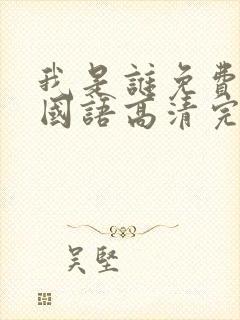 我是誰免費
國語高清完
吴堅